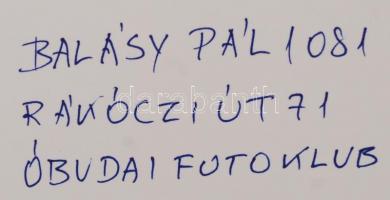 BALÁSY PÁL 1081
RÁKÓCZI ÚT 71
ÓBUDAI FOTOKLUB
darabanth